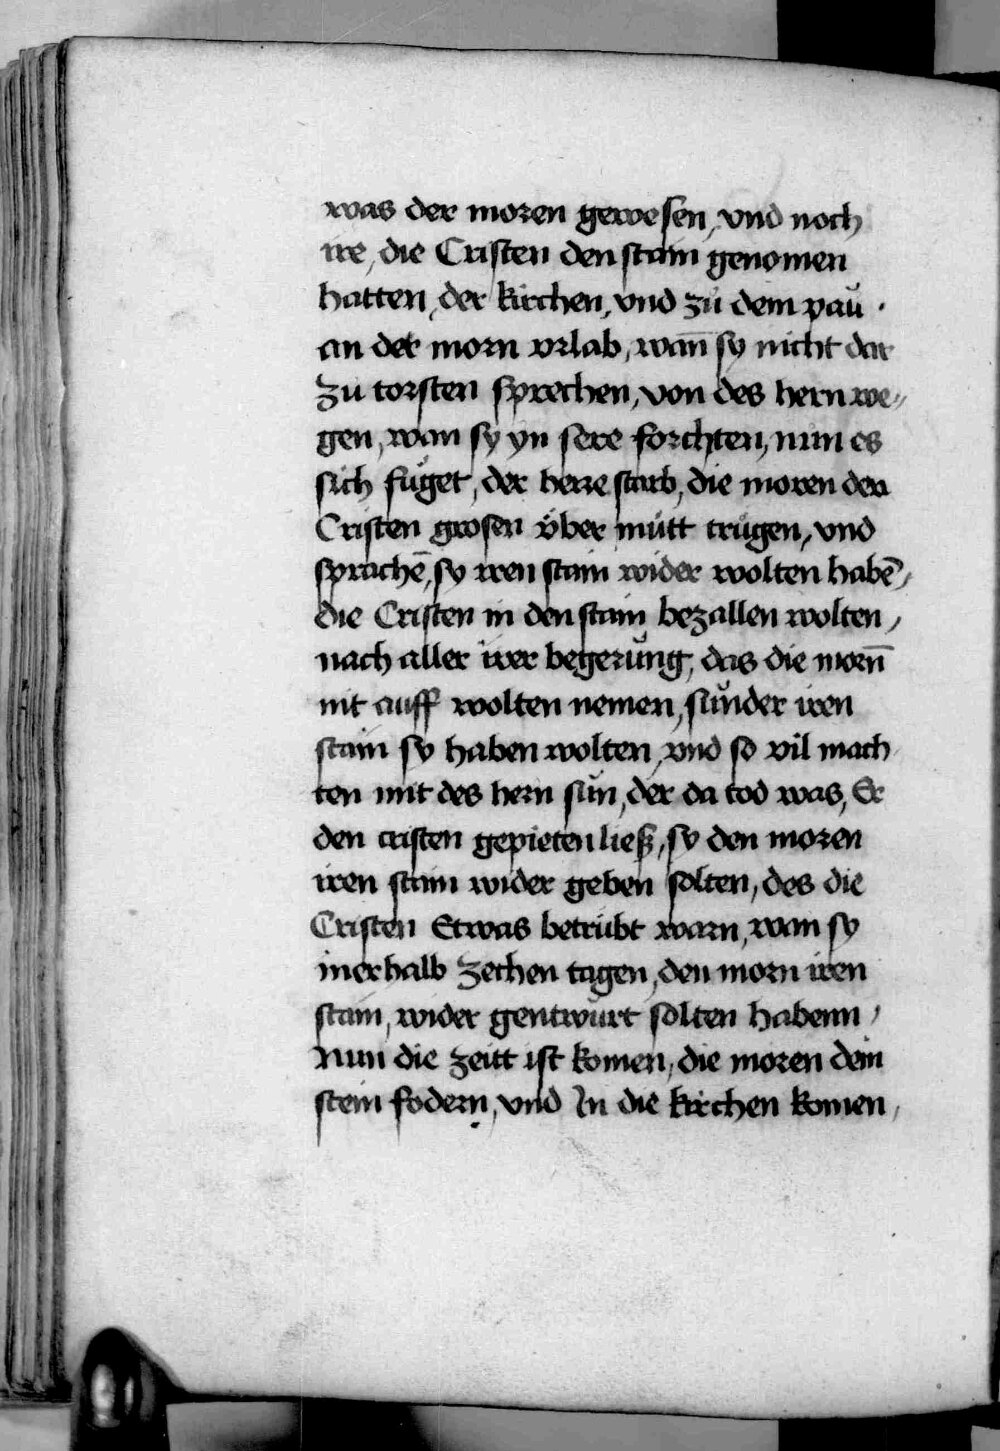 was der moren gewesen, vnd noch
ire, die Cristen den stain genomen
hatten, der kirchen, vnd zu dem paŭ ·
an der morn vrlab, wan̄ sy nicht dar
zu torsten sprechen, von des hern we„
gen, wan sy yn sere forchten, nun es
sich fuget, der herre starb, die moren den
Cristen grosen v̈ber mütt trŭgen, vnd
sprachē, sy iren stain wider wolten habē,
die Cristen in den stain bezallen wolten,
nach aller irer begerŭng, das die morn̄
nit auff wolten nemen, sŭnder iren
stain sy haben wolten, vnd so vil mach
ten mit des hern sŭn, der da tod was, Er
den cristen gepieten ließ, sy den moren
iren stain wider geben solten, des die
Cristen Etwas betrübt warn, wan sy
inerhalb zechen tagen, den morn iren
stain, wider gentwŭrt solten habenn,
Nun die zeitt ist komen, die moren dein
stein fodern, vnd In die kirchen komen,